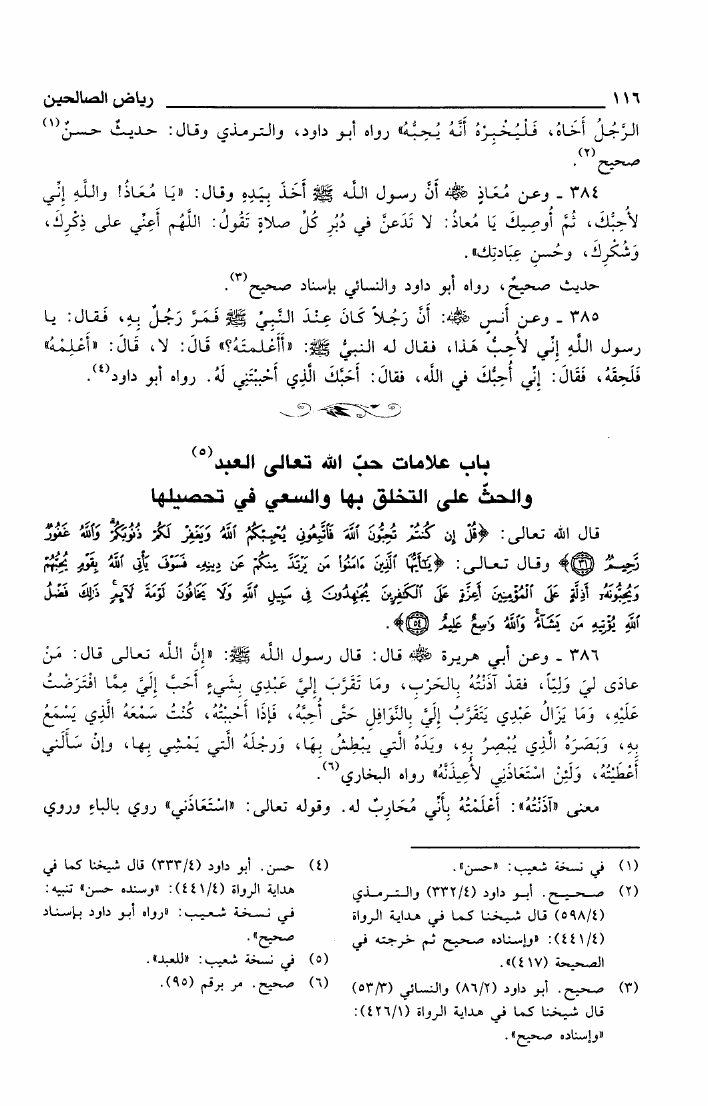 ١١٦ رياض الصالحين
الرَّجُلُ أَخَاهُ، فَلْيُخْبِرْهُ أَنَّهُ يُحِبُّهُ» رواه أبو داود، والترمذي وقال: حديثٌ حسنٌ(١)
صحيح(٢).
٣٨٤ ـ وعن مُعَاذٍ ﷺ أنَّ رسول اللَّه ﷺ أَخَذَ بِيَدِهِ وقال: «يَا مُعَاذُ! واللَّهِ إِنِّي
لأُحِبُّكَ، ثُمَّ أُوصِيكَ يَا مُعاذُ: لا تَدَعنَّ في دُبُرِ كُلِّ صلاةٍ تَقُولُ: اللَّهُم أَعِنِّي على ذِكْرِكَ،
وَشُكْرِكَ، وحُسنِ عِبَادتِك».
حديث صحيحٌ، رواه أبو داود والنسائي بإسناد صحيح(٣).
٣٨٥ ـ وعن أنسٍ رضي الله عنه: أَنَّ رَجُلاً كَانَ عِنْدَ النَّبِيِّ ﷺ فَمَرَّ رَجُلٌ بِهِ، فَقال: يا
رسول اللَّهِ إِنِّي لأُحِبُّ هَذا، فقال له النبيُّ ﷺ: «أَأَعْلمتَهُ؟» قَالَ: لا، قَالَ: «أَعْلِمْهُ»
فَلَحِقَهُ، فَقَالَ: إِنِّي أُحِبُّكَ في اللَّه، فقالَ: أَحَبَّكَ الَّذِي أَحْبَبْتَنِي لَهُ. رواه أبو داود(٤).
باب علامات حبّ الله تعالى العبد(٥)
والحثّ على التخلق بها والسعي في تحصيلها
قال الله تعالى: ﴿قُلْ إِن كُنتُمْ تُحِبُّونَ اللَّهَ فَاتَّبِعُونِي يُحْبِبْكُمُ اللَّهُ وَيَغْفِرْ لَكُمْ ذُنُوبَكُمْ وَاللَّهُ غَفُورٌ
رَّحِيمٌ ٣١﴾ وقال تعالى: ﴿يَٰأَيُّهَا الَّذِينَ ءَامَنُوا مَن يَرْتَدَّ مِنكُمْ عَن دِينِهِ فَسَوْفَ يَأْتِي اللَّهُ بِقَوْمٍ يُحِبُّهُمْ
وَيُحِبُّونَهُ أَذِلَّةٍ عَلَى الْمُؤْمِنِينَ أَعِزَّةٍ عَلَى الْكَٰفِرِينَ يُجَٰهِدُونَ فِي سَبِيلِ اللَّهِ وَلَا يَخَافُونَ لَوْمَةَ لَآئِمٍ ذَٰلِكَ فَضْلُ
اللَّهِ يُؤْتِيهِ مَن يَشَآءُ وَاللَّهُ وَاسِعٌ عَلِيمٌ ٥٤﴾.
٣٨٦ ـ وعن أبي هريرة رضي الله عنه قال: قال رسول اللَّه ﷺ: «إِنَّ اللَّه تعالى قال: مَنْ
عادَى ليَ وَلِيّاً، فقدْ آذَنْتُهُ بِالحَرْبِ، ومَا تَقَرَّبَ إِليَّ عَبْدِي بِشَيءٍ أَحَبَّ إِلَيَّ مِمَّا افْتَرَضْتُ
عَلَيْهِ، وَمَا يَزَالُ عَبْدِي يَتَقَرَّبُ إِلَيَّ بِالنَّوَافِلِ حَتَّى أُحِبَّهُ، فَإذَا أَحْبَبْتُهُ، كُنْتُ سَمْعَهُ الَّذِي يَسْمَعُ
بِهِ، وَبَصَرَهُ الَّذِي يُبْصِرُ بِهِ، ويَدَهُ الَّتي يبْطِشُ بِهَا، وَرِجْلَهُ الَّتي يَمْشِي بِها، وإنْ سَأَلَني
أَعْطَيْتُهُ، وَلَئِنْ اسْتَعَاذَنِي لأُعِيذَنَّهُ» رواه البخاري(٦).
معنى «آذَنْتُهُ»: أَعْلَمْتُهُ بِأَنِّي مُحَارِبٌ له. وقوله تعالى: «اسْتَعَاذَني» روي بالباءِ وروي
(١) في نسخة شعيب: «حسن».
(٢) صحيح. أبو داود (٣٣٢/٤) والترمذي
(٥٩٨/٤) قال شيخنا كما في هداية الرواة
(٤٤١/٤): «وإسناده صحيح ثم خرجته في
الصحيحة (٤١٧)».
(٣) صحيح. أبو داود (٨٦/٢) والنسائي (٥٣/٣)
قال شيخنا كما في هداية الرواة (٤٢٦/١):
«وإسناده صحيح».
(٤) حسن. أبو داود (٣٣٣/٤) قال شيخنا كما في
هداية الرواة (٤٤١/٤): «وسنده حسن» تنبيه:
في نسخة شعيب: «رواه أبو داود بإسناد
صحيح».
(٥) في نسخة شعيب: «للعبد».
(٦) صحيح. مر برقم (٩٥).